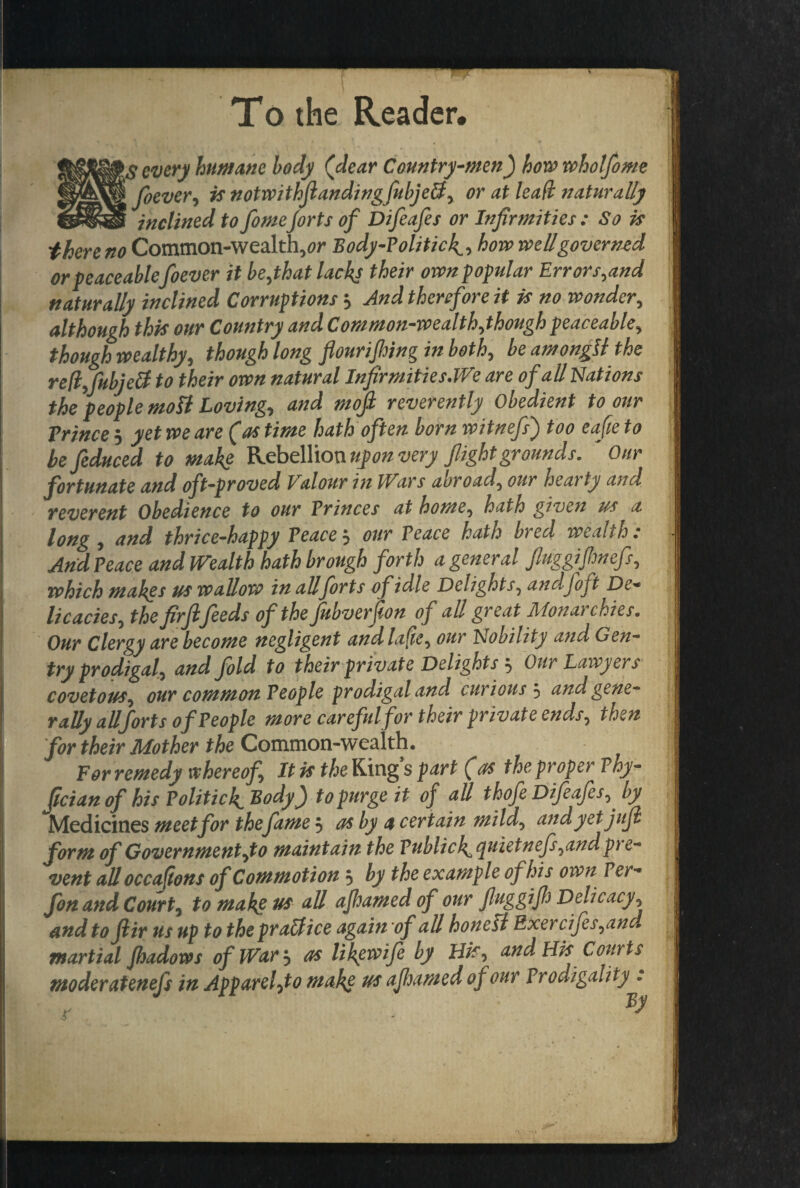 To the Reader.
AS every humane body (dear Country-men) how wholſome
ſoever, is notwithſtanding ſubject, or at leaſt naturally
inclined to ſome ſorts of Diſeaſes or Infirmities: So is
there no Common-wealth, or Body-Politick, how well governed
or peaceable ſoever it be, that lacks their own popular Errors, and
naturally inclined Corruptions; And therefore it is no wonder,
although this our Country and Common-wealth, though peaceable,
though wealthy, though long flouriſhing in both, be amongst the
reſt, ſubject to their own natural Infirmities. We are of all Nations
the people most Loving, and moſt reverently Obedient to our
Prince; yet we are (as time hath often born witneſs) too eaſie to
be ſeduced to make Rebellion upon very ſlight grounds. Our
fortunate and oft-proved Valour in Wars abroad, our hearty and
reverent Obedience to our Princes at home, hath given us a
long, and thrice-happy Peace; our Peace hath bred wealth:
And Peace and Wealth hath brough forth a general ſluggiſhneſs,
which makes us wallow in all ſorts of idle Delights, and ſoft De-
licacies, the firſt ſeeds of the ſubverſion of all great Monarchies.
Our Clergy are become negligent and laſie, our Nobility and Gen-
try prodigal, and ſold to their private Delights; Our Lawyers
covetous, our common People prodigal and curious; and gene-
rally all ſorts of People more careful for their private ends, then
for their Mother the Common-wealth.
For remedy whereof, It is the King's part (as the proper Phy-
ſician of his Politick Body) to purge it of all thoſe Diſeaſes, by
Medicines meet for the ſame; as by a certain mild, and yet juſt
form of Government, to maintain the Publick quietneſs, and pre-
vent all occaſions of Commotion; by the example of his own Per-
ſon and Court, to make us all aſhamed of our ſluggiſh Delicacy,
and to ſtir us up to the practice again of all honest Exerciſes, and
martial ſhadows of War; as likewiſe by His, and His Courts
moderateneſs in Apparel, to make us aſhamed of our Prodigality:
By